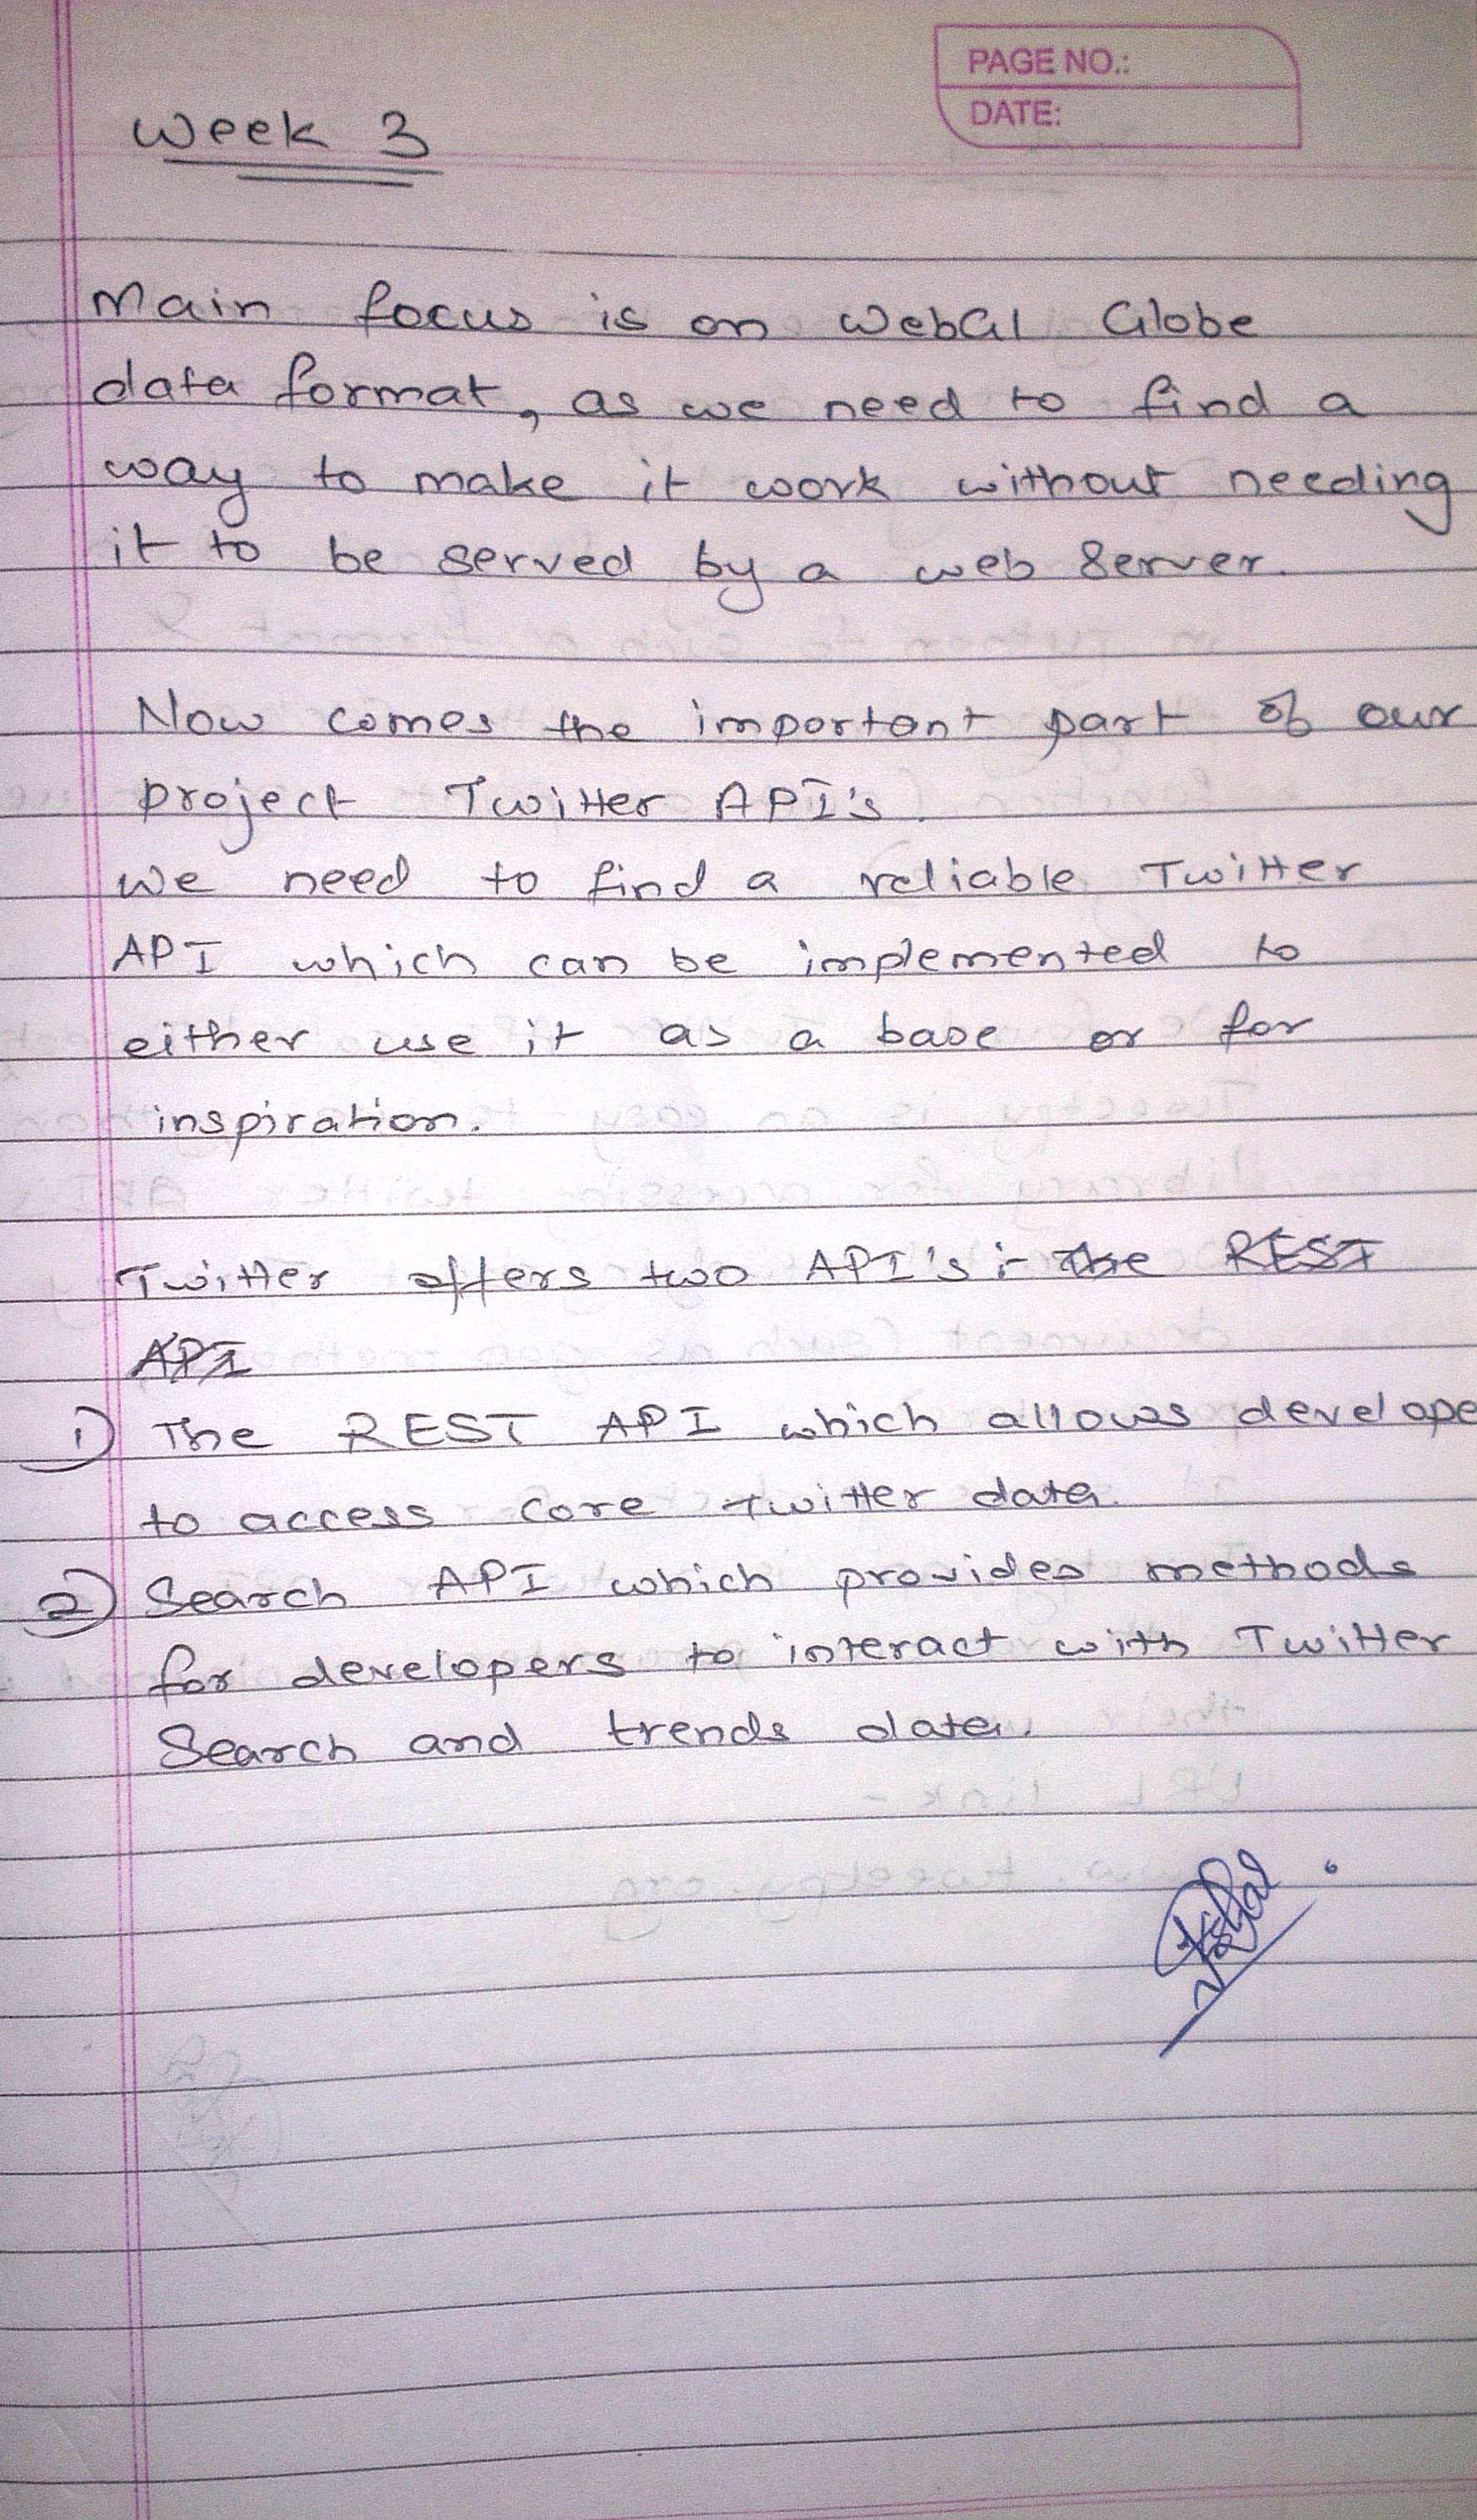 PAGE NO.:
DATE:
Week 3
Main focus is on WebGl Globe
data format, as we need to find a
way to make it work without needing
it to be served by a web server.
Now comes the important part of our
project Twitter API's.
We need to find a reliable Twitter
API which can be implemented to
either use it as a base or for
inspiration.
Twitter offers two API's :- The REST
API
1) The REST API which allows develope
to access core twitter data.
2) Search API which provides methods
for developers to interact with Twitter
Search and trends data.